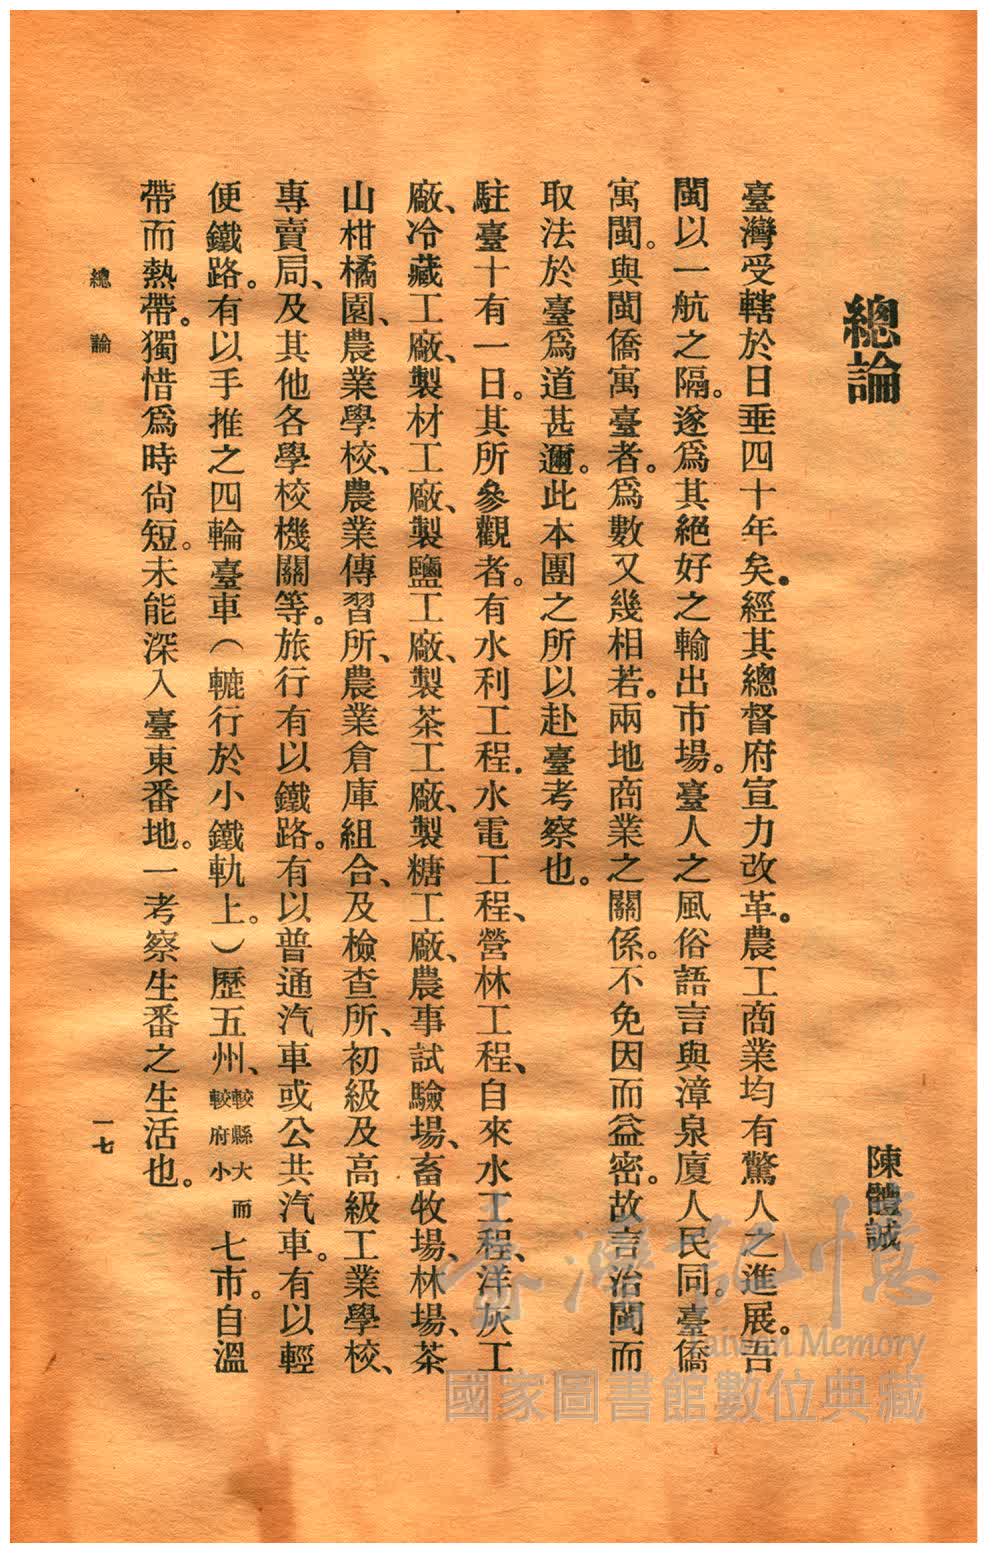 總論
陳體誠
臺灣受轄於日垂四十年矣．經其總督府宣力改革。農工商業均有驚人之進展。吾
閩以一航之隔。遂爲其絕好之輸出市場。臺人之風俗語言與漳泉廈人民同。臺僑
寓閩。與閩僑寓臺者。爲數又幾相若。兩地商業之關係。不免因而益密。故言治閩而
取法於臺爲道甚邇。此本團之所以赴臺考察也。
駐臺十有一日。其所參觀者。有水利工程．水電工程、營林工程、自來水工程、洋灰工
廠、冷藏工廠、製材工廠、製鹽工廠、製茶工廠、製糖工廠、農事試驗場、畜牧場、林場、茶
山柑橘園、農業學校、農業傳習所、農業倉庫組合、及檢查所、初級及高級工業學校、
專賣局、及其他各學校機關等。旅行有以鐵路。有以普通汽車或公共汽車。有以輕
便鐵路。有以手推之四輪臺車（轆行於小鐵軌上。）歷五州、較縣大而較府小七市。自溫
帶而熱帶。獨惜爲時尙短。未能深入臺東番地。一考察生番之生活也。
總論
一七
臺灣記憶
Taiwan Memory
國家圖書館數位典藏